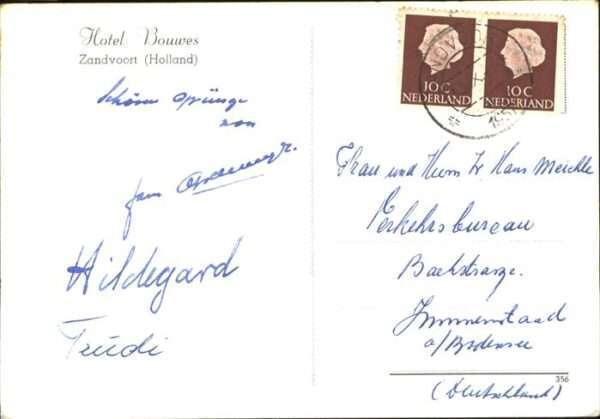 Hotel Bouwes
Zandvoort (Holland)
Schöne Grüsse
von
fam
Hildegard
Trudi
10 C
NEDERLAND
10 C
NEDERLAND
Frau und Herrn Dr Hans Meichle
Verkehrsbureau
Bachstrasze.
Immenstaad
a/Bodensee
(Deutschland)
356